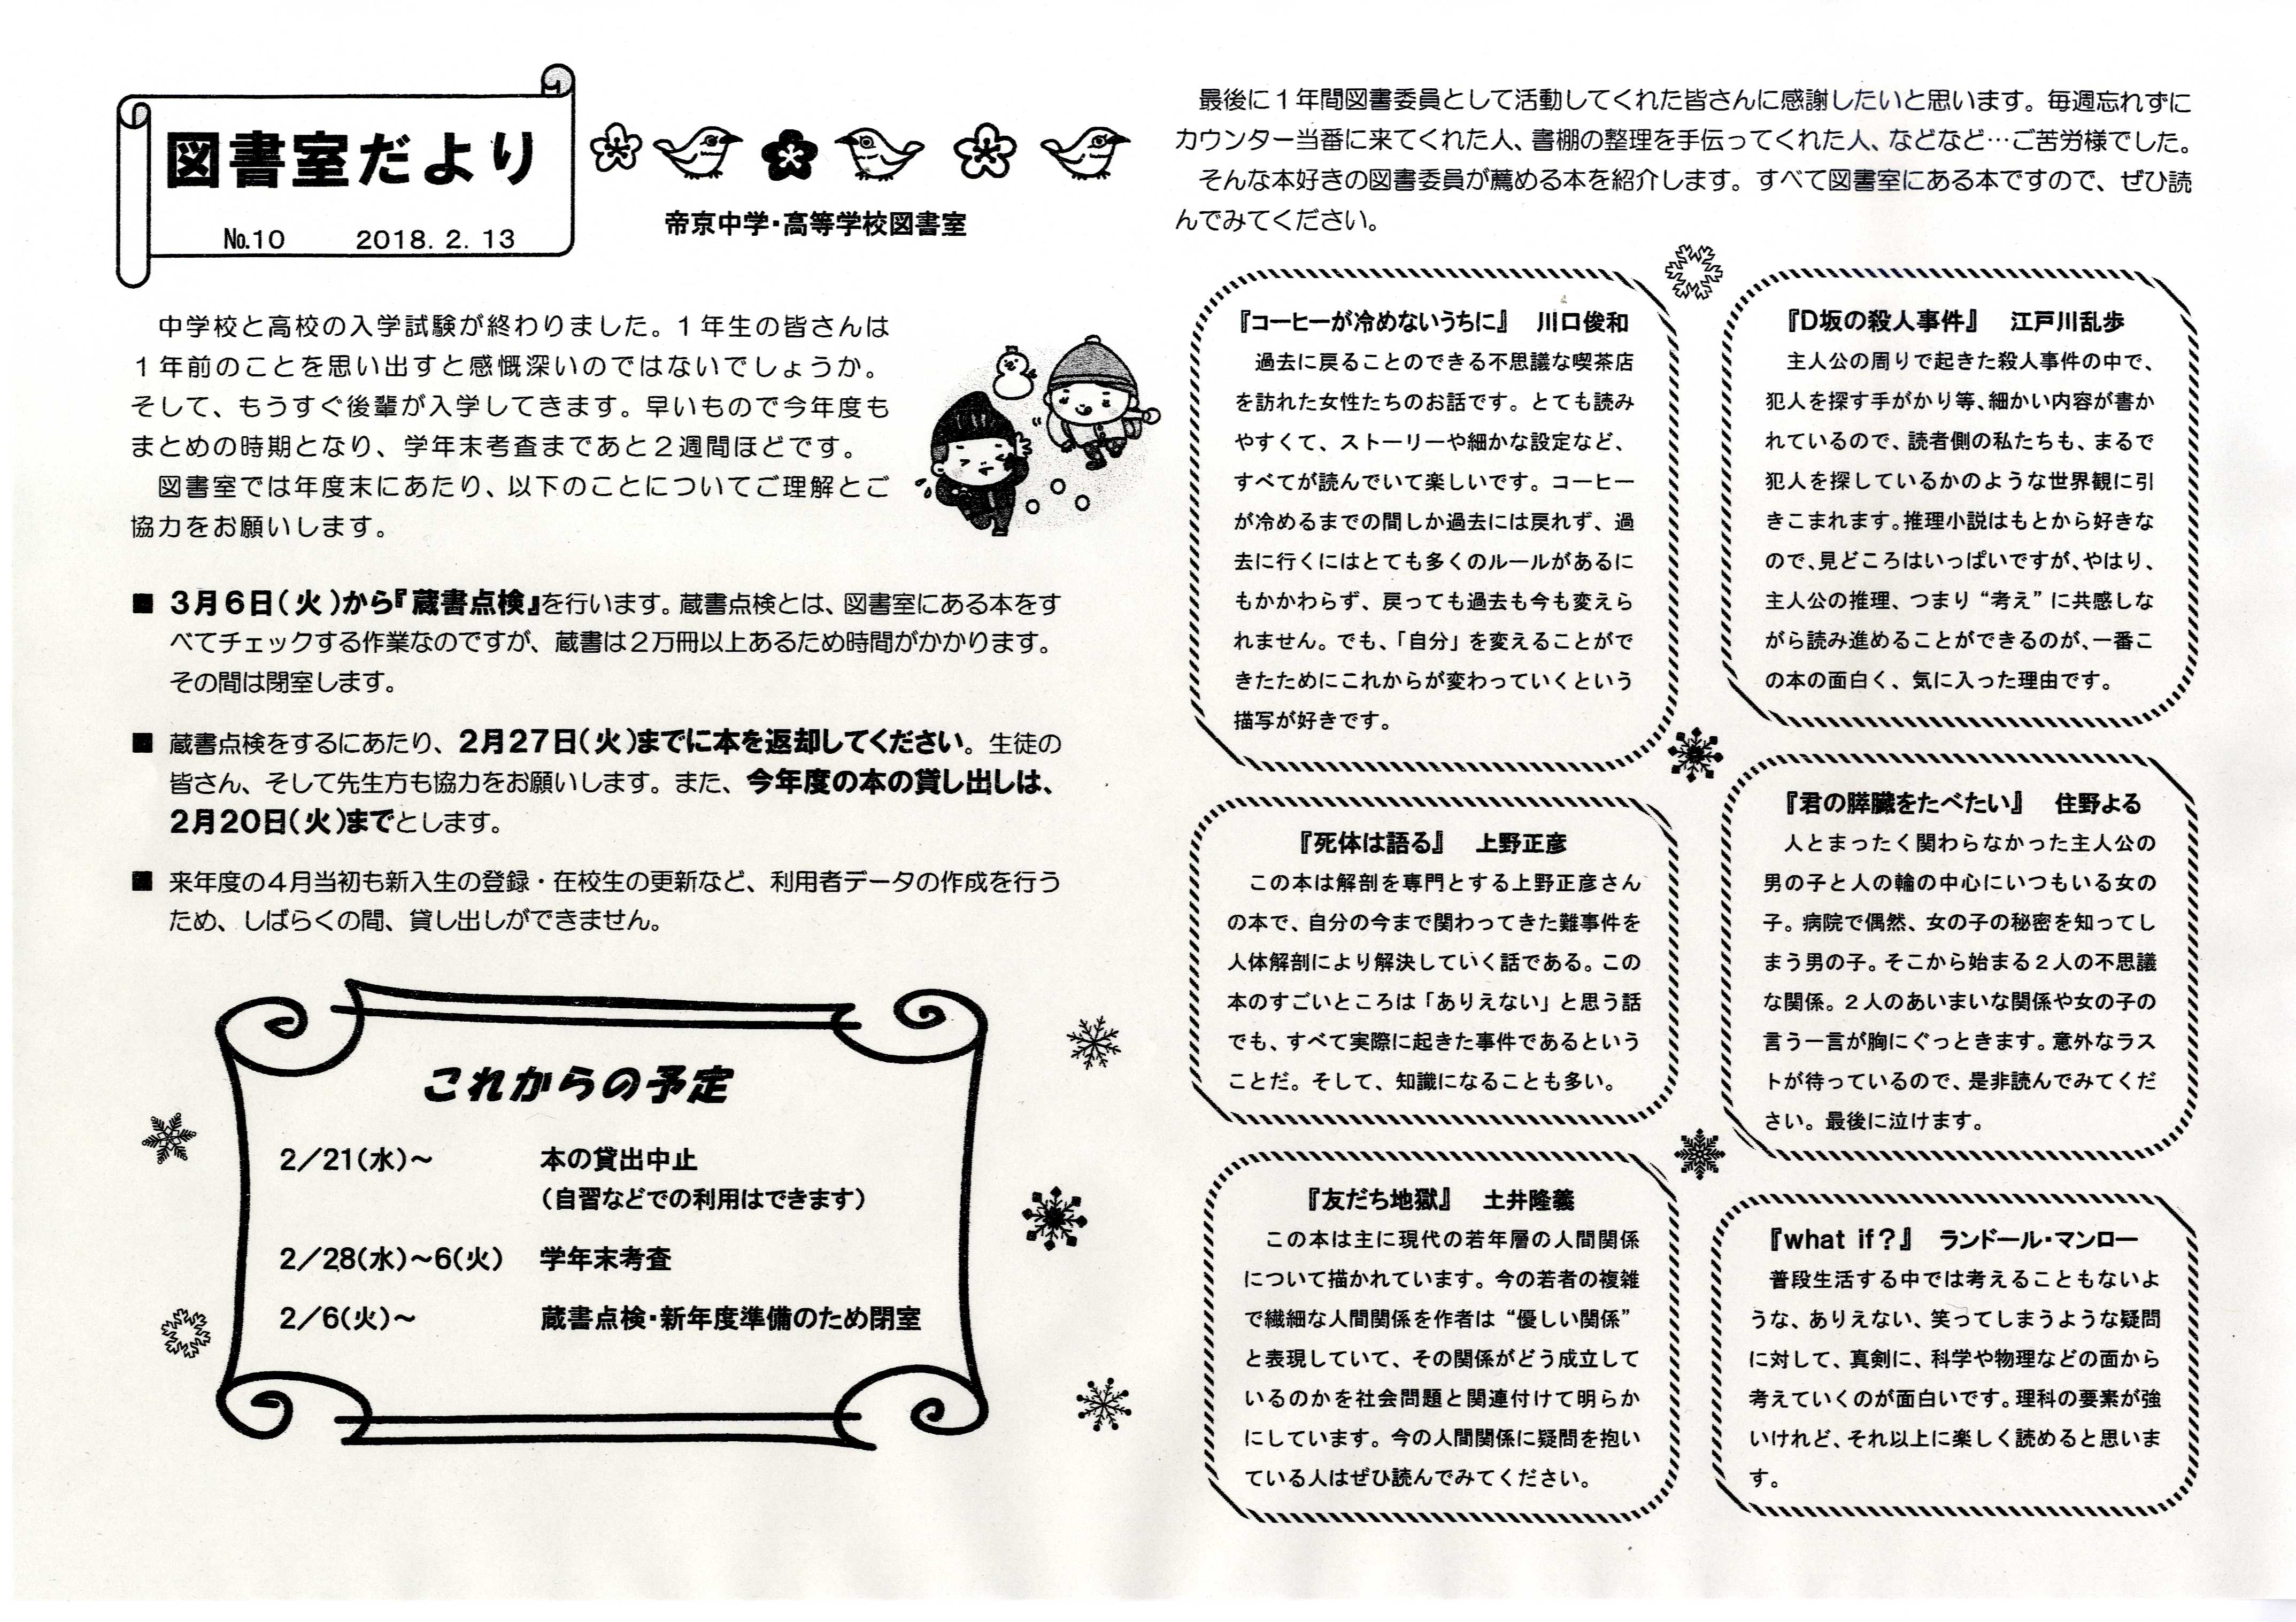 図書室だより
№10 2018. 2. 13
帝京中学・高等学校図書室
中学校と高校の入学試験が終わりました。1年生の皆さんは
1年前のことを思い出すと感慨深いのではないでしょうか。
そして、もうすぐ後輩が入学してきます。早いもので今年度も
まとめの時期となり、学年末考査まであと2週間ほどです。
図書室では年度末にあたり、以下のことについてご理解とご
協力をお願いします。
■ 3月6日(火)から『蔵書点検』を行います。蔵書点検とは、図書室にある本をす
べてチェックする作業なのですが、蔵書は2万冊以上あるため時間がかかります。
その間は閉室します。
■ 蔵書点検をするにあたり、2月27日(火)までに本を返却してください。生徒の
皆さん、そして先生方も協力をお願いします。また、今年度の本の貸し出しは、
2月20日(火)までとします。
■ 来年度の4月当初も新入生の登録・在校生の更新など、利用者データの作成を行う
ため、しばらくの間、貸し出しができません。
これからの予定
2/21(水)~ 本の貸出中止
(自習などでの利用はできます)
2/28(水)~6(火) 学年末考査
2/6(火)~ 蔵書点検・新年度準備のため閉室
最後に1年間図書委員として活動してくれた皆さんに感謝したいと思います。毎週忘れずに
カウンター当番に来てくれた人、書棚の整理を手伝ってくれた人、などなど…ご苦労様でした。
そんな本好きの図書委員が薦める本を紹介します。すべて図書室にある本ですので、ぜひ読
んでみてください。
『コーヒーが冷めないうちに』 川口俊和
過去に戻ることのできる不思議な喫茶店
を訪れた女性たちのお話です。とても読み
やすくて、ストーリーや細かな設定など、
すべてが読んでいて楽しいです。コーヒー
が冷めるまでの間しか過去には戻れず、過
去に行くにはとても多くのルールがあるに
もかかわらず、戻っても過去も今も変えら
れません。でも、「自分」を変えることがで
きたためにこれからが変わっていくという
描写が好きです。
『死体は語る』 上野正彦
この本は解剖を専門とする上野正彦さん
の本で、自分の今まで関わってきた難事件を
人体解剖により解決していく話である。この
本のすごいところは「ありえない」と思う話
でも、すべて実際に起きた事件であるという
ことだ。そして、知識になることも多い。
『友だち地獄』 土井隆義
この本は主に現代の若年層の人間関係
について描かれています。今の若者の複雑
で繊細な人間関係を作者は“優しい関係”
と表現していて、その関係がどう成立して
いるのかを社会問題と関連付けて明らか
にしています。今の人間関係に疑問を抱い
ている人はぜひ読んでみてください。
『D坂の殺人事件』 江戸川乱歩
主人公の周りで起きた殺人事件の中で、
犯人を探す手がかり等、細かい内容が書か
れているので、読者側の私たちも、まるで
犯人を探しているかのような世界観に引
きこまれます。推理小説はもとから好きな
ので、見どころはいっぱいですが、やはり、
主人公の推理、つまり“考え”に共感しな
がら読み進めることができるのが、一番こ
の本の面白く、気に入った理由です。
『君の膵臓をたべたい』 住野よる
人とまったく関わらなかった主人公の
男の子と人の輪の中心にいつもいる女の
子。病院で偶然、女の子の秘密を知ってし
まう男の子。そこから始まる2人の不思議
な関係。2人のあいまいな関係や女の子の
言う一言が胸にぐっときます。意外なラス
トが待っているので、是非読んでみてくだ
さい。最後に泣けます。
『what if?』 ランドール・マンロー
普段生活する中では考えることもないよ
うな、ありえない、笑ってしまうような疑問
に対して、真剣に、科学や物理などの面から
考えていくのが面白いです。理科の要素が強
いけれど、それ以上に楽しく読めると思いま
す。